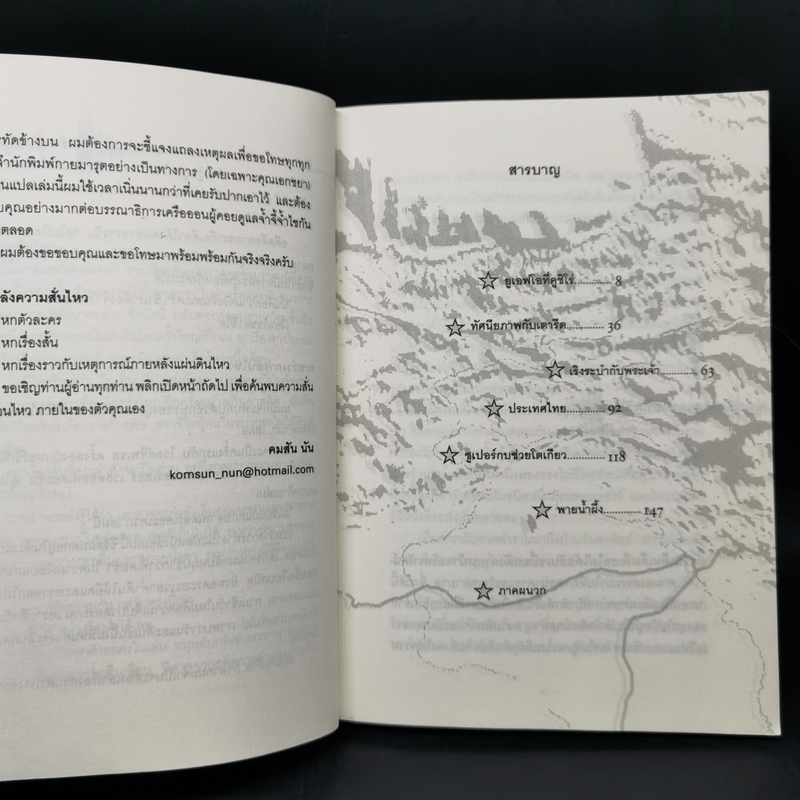 รทัดข้างบน ผมต้องการจะชี้แจงแถลงเหตุผลเพื่อขอโทษทุกทุก
สำนักพิมพ์กายมารุตอย่างเป็นทางการ (โดยเฉพาะคุณเอกชยา)
นแปลเล่มนี้ผมใช้เวลาเนิ่นนานกว่าที่เคยรับปากเอาไว้ และต้อง
บคุณอย่างมากต่อบรรณาธิการเครือออนผู้คอยดูแลจ้ำจี้จ้ำไชกัน
ตลอด
ผมต้องขอขอบคุณและขอโทษมาพร้อมพร้อมกันจริงจริงครับ
ลังความสั่นไหว
หกตัวละคร
หกเรื่องสั้น
หกเรื่องราวกับเหตุการณ์ภายหลังแผ่นดินไหว
ขอเชิญท่านผู้อ่านทุกท่าน พลิกเปิดหน้าถัดไป เพื่อค้นพบความสั่น
อนไหว ภายในของตัวคุณเอง
คมสัน นัน
komsun_nun@hotmail.com
สารบาญ
ยูเอฟโอที่คูชิโร่............ 8
ทัศนียภาพกับเตารีด............ 36
เริงระบำกับพระเจ้า............ 63
ประเทศไทย............ 92
ซูเปอร์กบช่วยโตเกียว............ 118
พายน้ำผึ้ง............ 147
ภาคผนวก